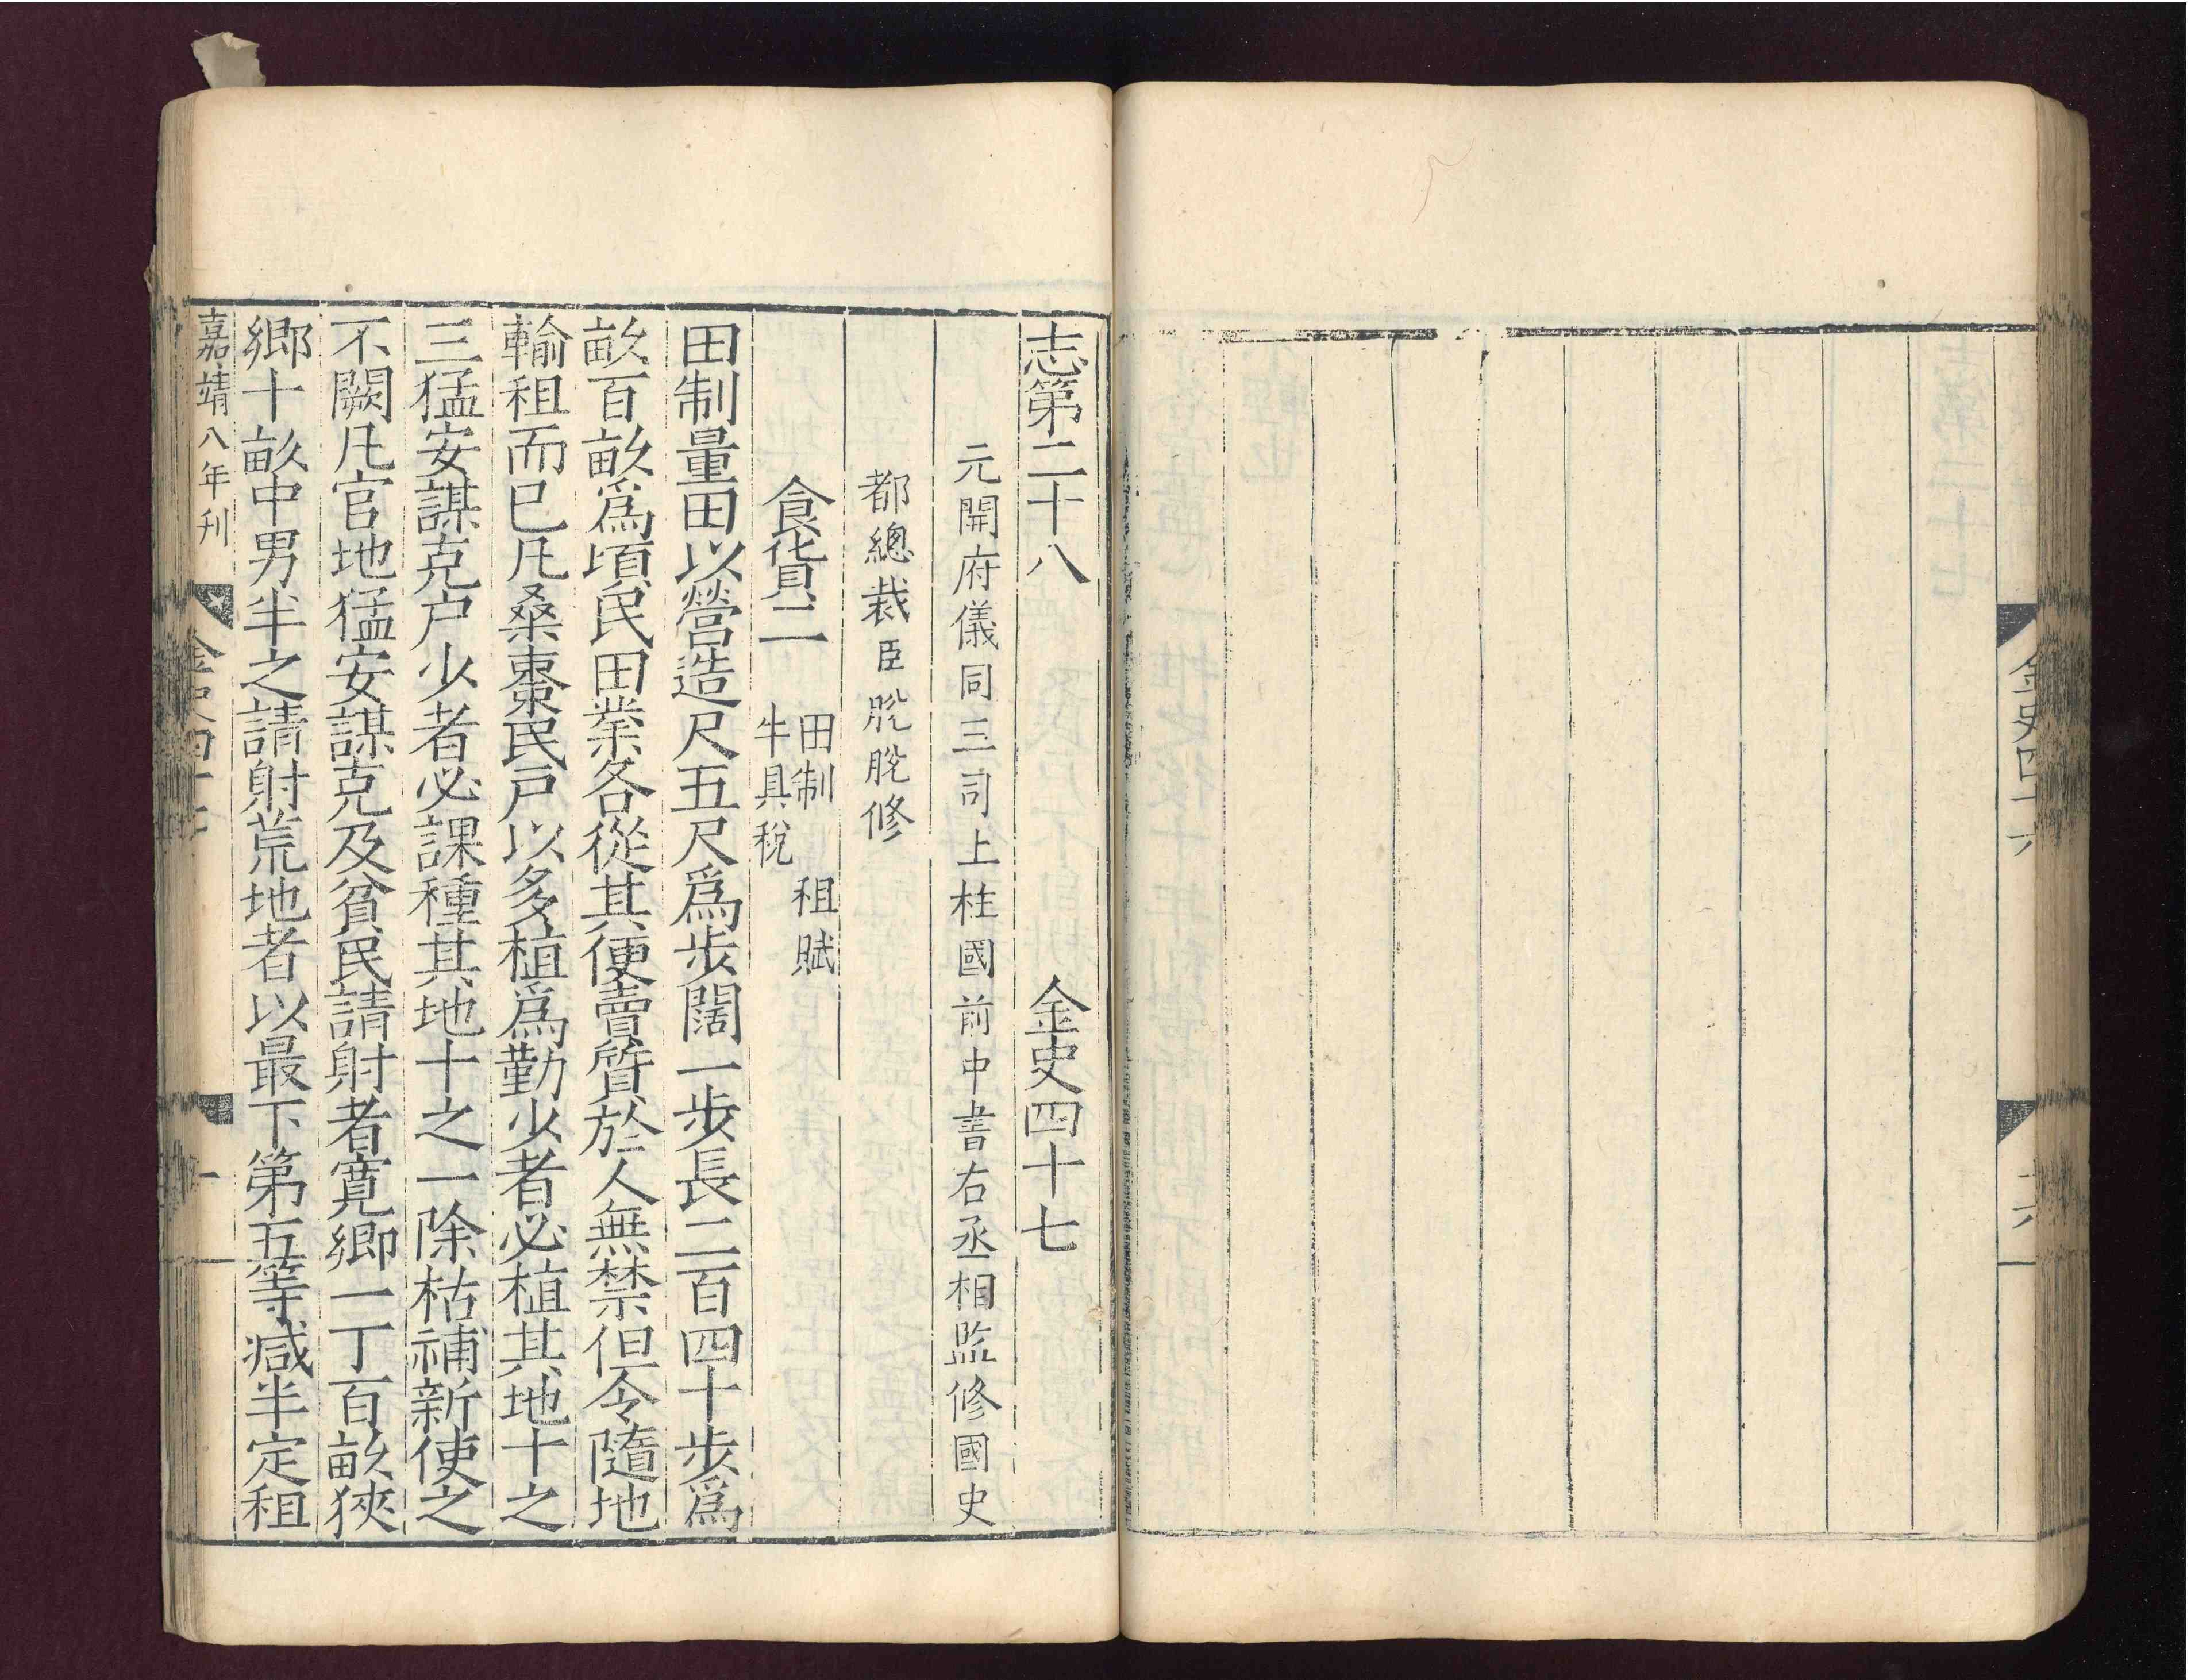 金史四十六
六
志第二十八 金史四十七
元開府儀同三司上柱國前中書右丞相監修國史
都總裁臣脫脫修
食貨二 田制 租賦
牛具稅
田制量田以營造尺五尺爲步闊一步長二百四十步爲
畝百畝爲頃民田業各從其便賣質於人無禁但令隨地
輸租而已凡桑棗民戶以多植爲勤少者必植其地十之
三猛安謀克户少者必課種其地十之一除枯補新使之
不闕凡官地猛安謀克及貧民請射者寬鄉一丁百畝狹
鄉十畝中男半之請射荒地者以最下第五等減半定租
嘉靖八年刊 金史四十七 一